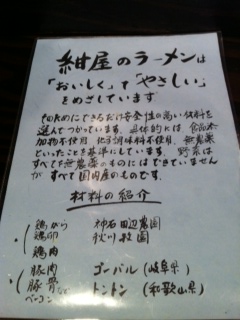 紺屋のラーメンは
「おいしく」て「やさしい」
をめざしています
そのためにできるだけ安全性の高い材料を
選んでつかっています。具体的には、食品添
加物不使用、化学調味料不使用、無農薬
といったことを基準にしています。野菜は
すべて無農薬のものにはできていません
が すべて国内産のものです。
材料の紹介
鶏がら 神石田辺農園
鶏卵 秋川牧園
鶏肉
豚肉 ゴーバル(岐阜県)
豚骨など トントン(和歌山県)
ベーコン